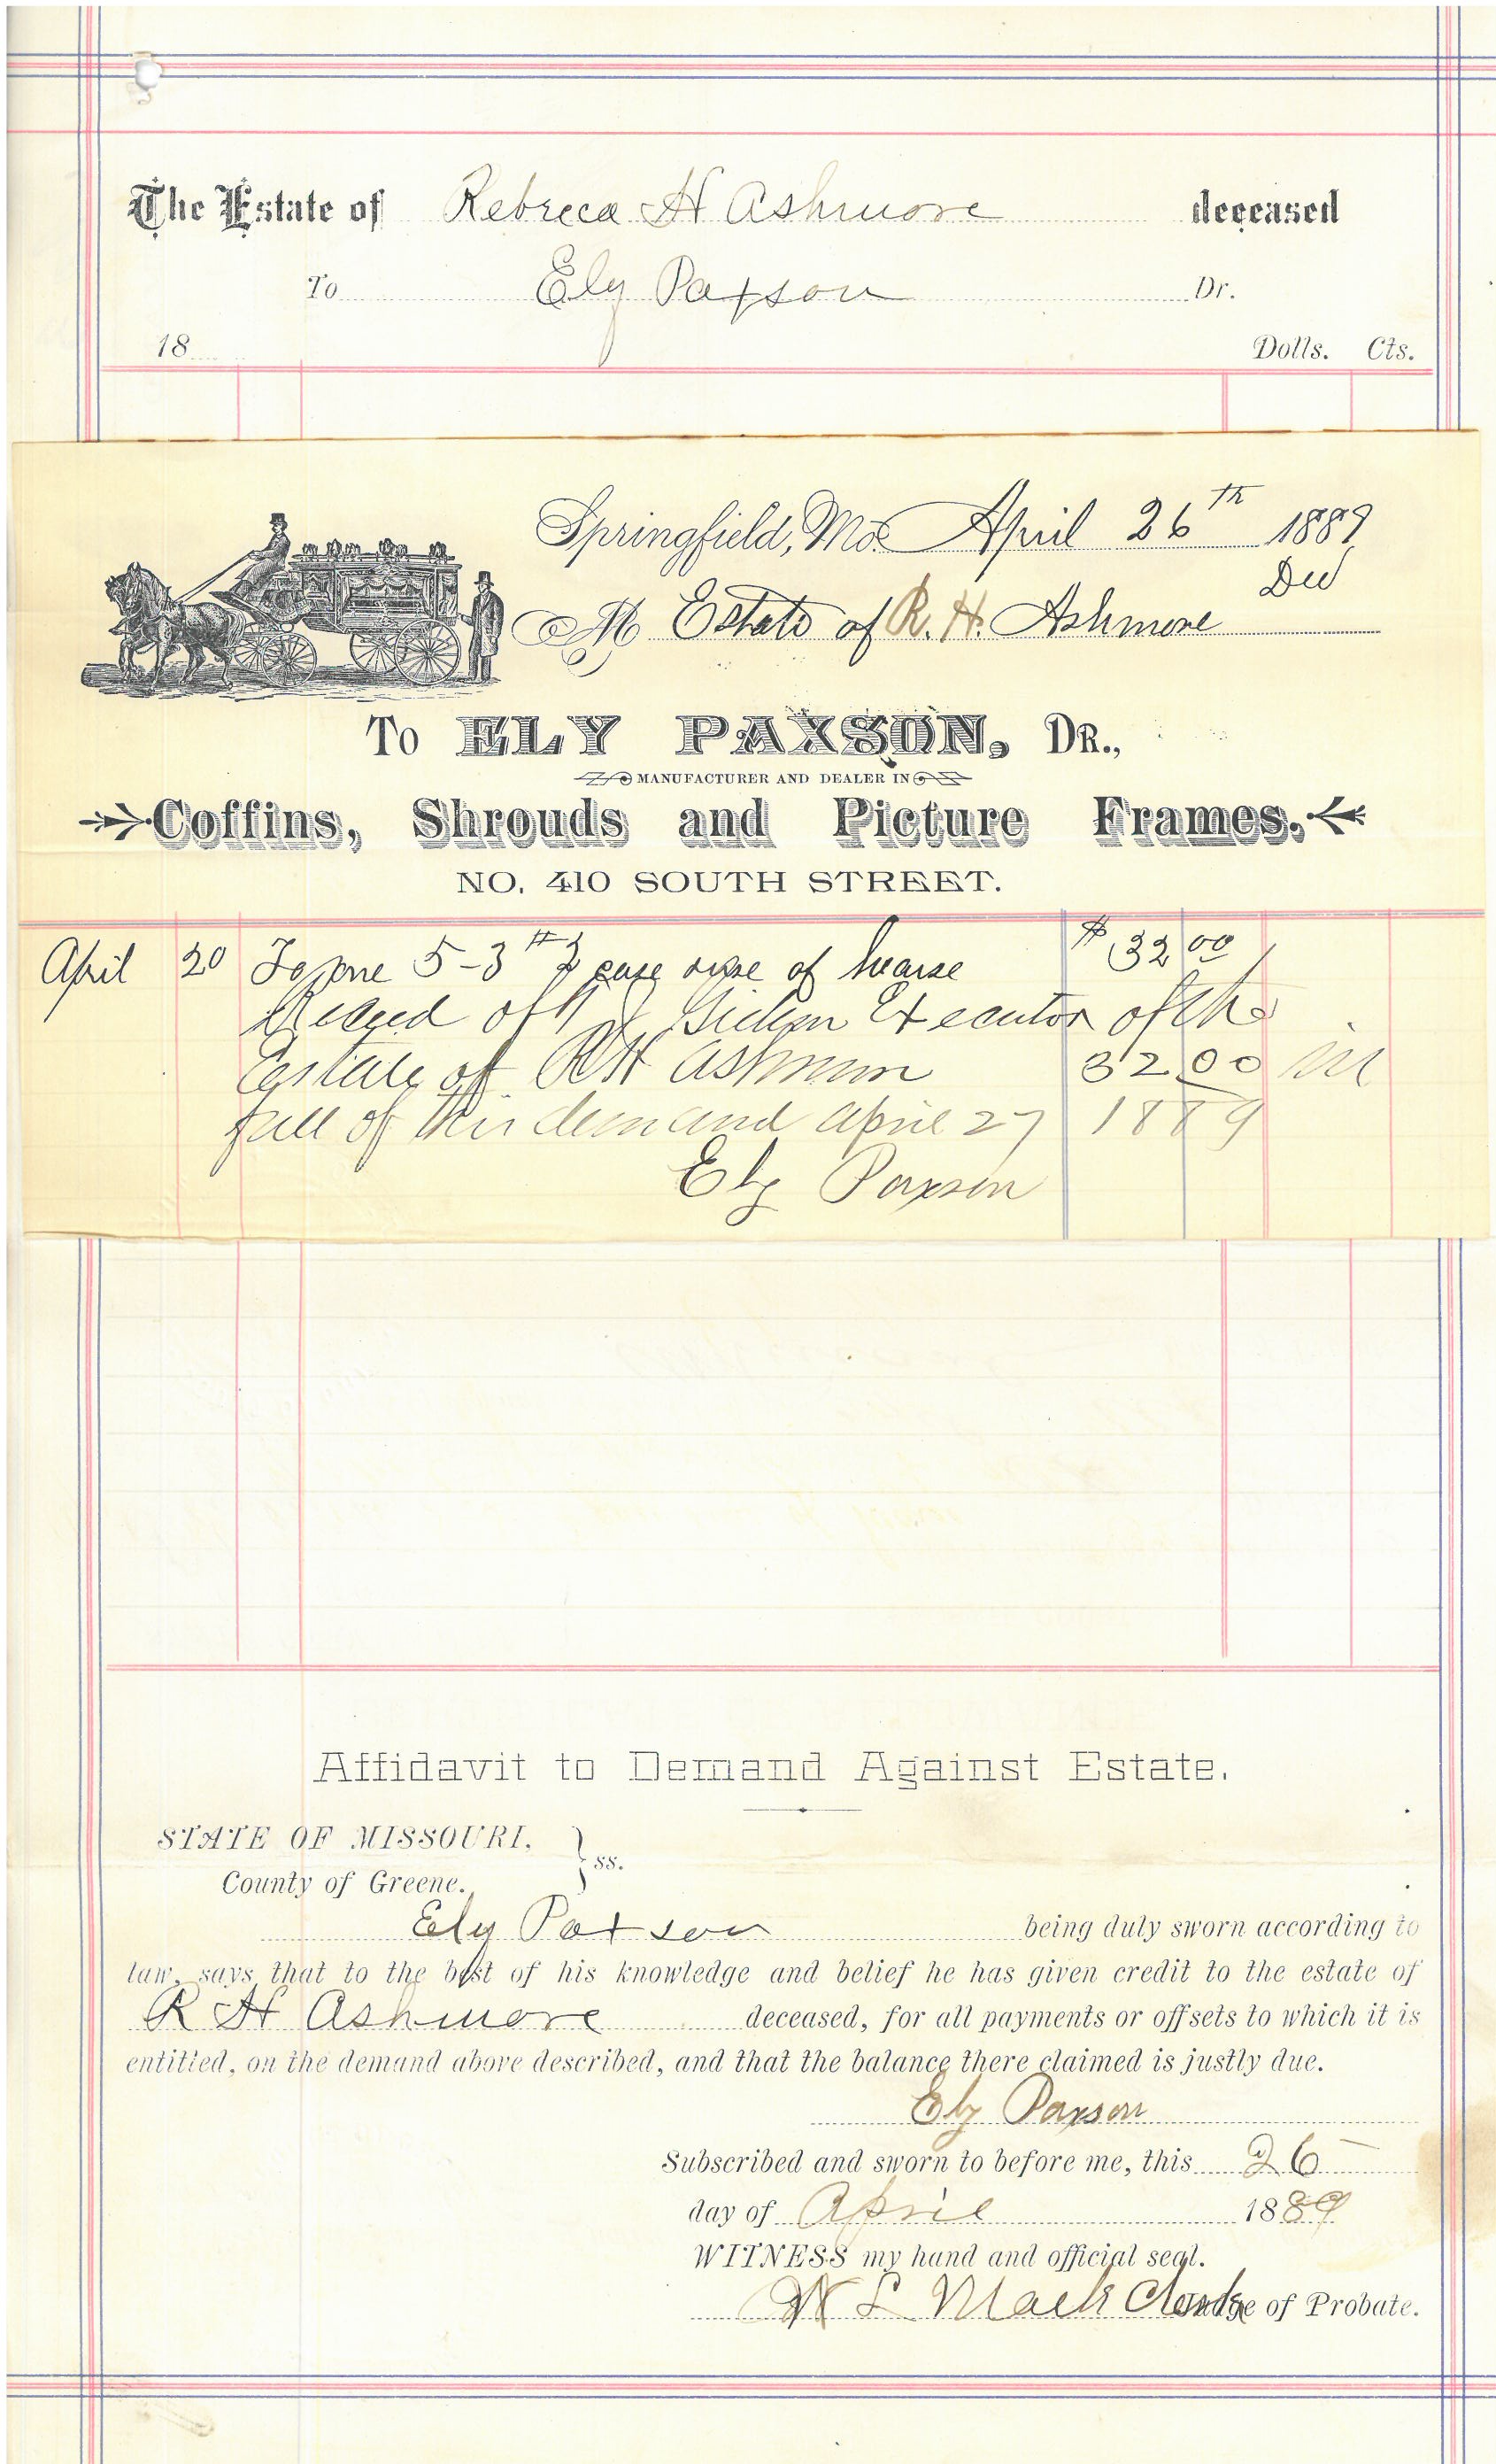 The Estate of Rebreca H Ashmore deceased
To Ely Paxson Dr.
18 Dolls. Cts.
Springfield, Mo. April 26th 1889
M Estate of R. H. Ashmore Decd
To ELY PAXSON, DR.,
MANUFACTURER AND DEALER IN
Coffins, Shrouds and Picture Frames.
NO. 410 SOUTH STREET.
April 20 To one 5-3 # 2 case use of hearse $ 32 00
Recved of J Executor of the
Estate of R H Ashmore 32 00 in
full of this demand april 27 1889
Ely Paxson
Affidavit to Demand Against Estate.
STATE OF MISSOURI,
County of Greene. } ss.
Ely Paxson being duly sworn according to
law, says that to the best of his knowledge and belief he has given credit to the estate of
R H Ashmore deceased, for all payments or offsets to which it is
entitled, on the demand above described, and that the balance there claimed is justly due.
Ely Paxson
Subscribed and sworn to before me, this 26
day of April 1889
WITNESS my hand and official seal.
W L Mack Clerk Judge of Probate.